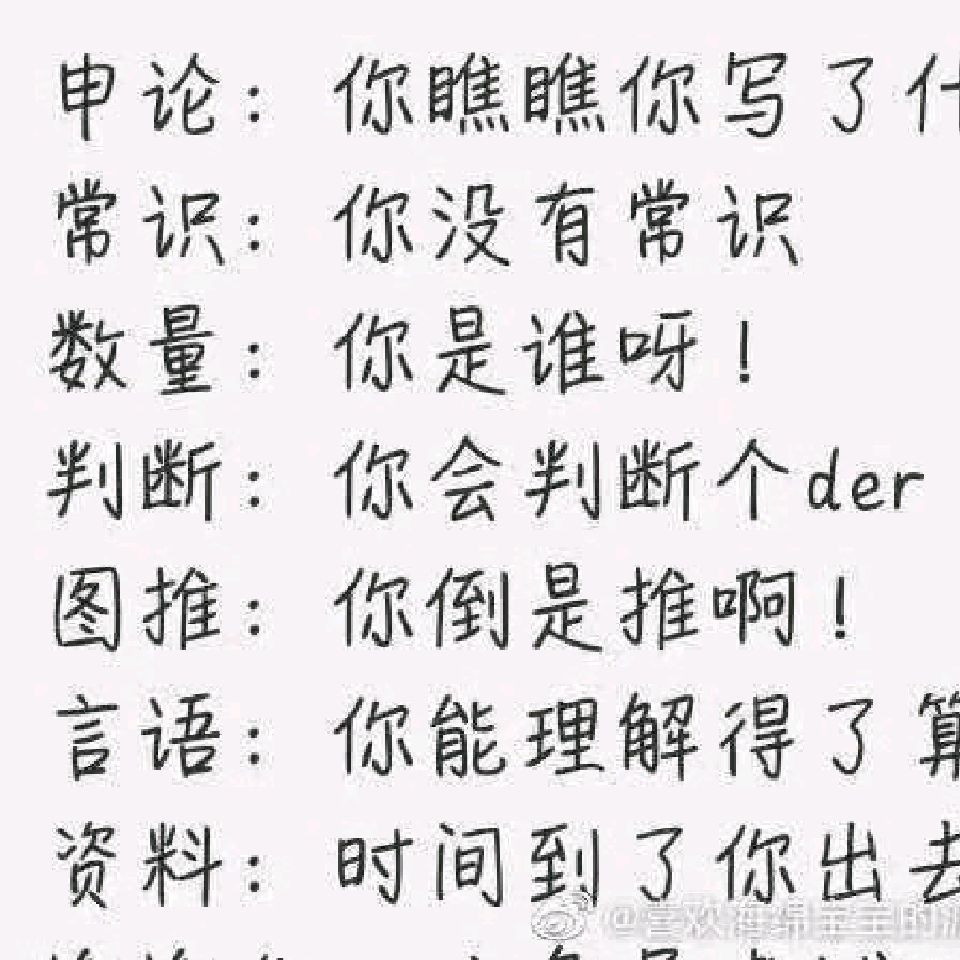 申论：你瞧瞧你写了什
常识：你没有常识
数量：你是谁呀！
判断：你会判断个der
图推：你倒是推啊！
言语：你能理解得了算
资料：时间到了你出去
@喜欢海绵宝宝的派